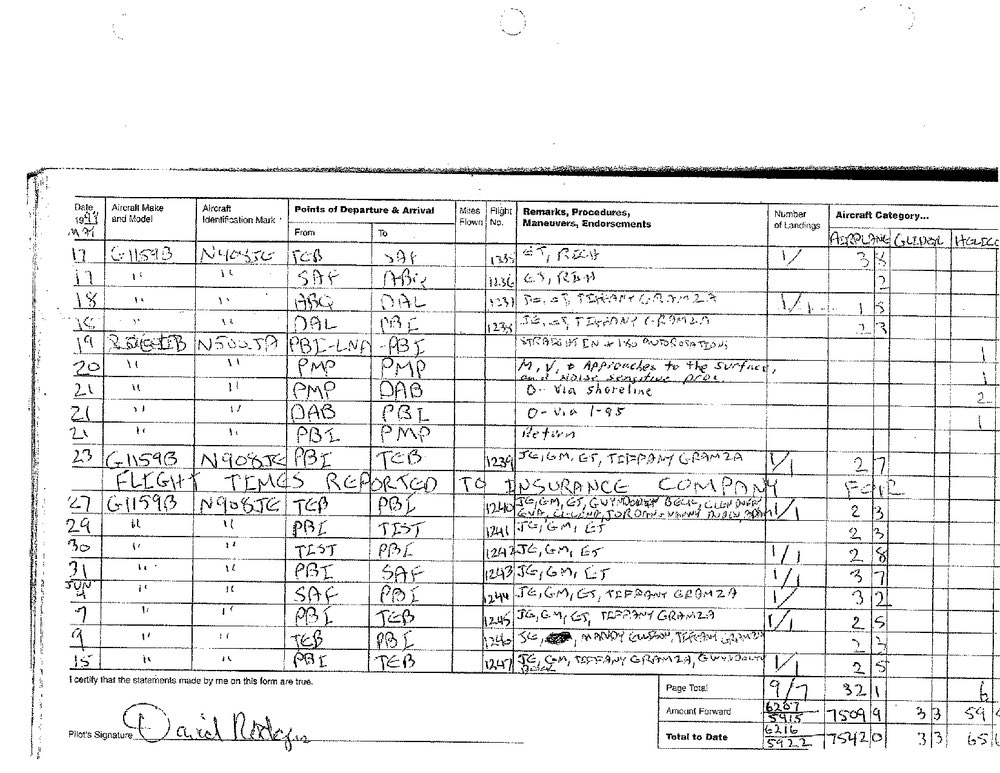 Date 1997 Aircraft Make and Model Aircraft Identification Mark Points of Departure & Arrival Miles Flown Flight No. Remarks, Procedures, Maneuvers, Endorsements Number of Landings Aircraft Category...
From To AIRPLANE GLIDER HELIC
17 G1159B N908JE TEB SAF 1235 ET, RICH 1/ 3 8
17 " " SAF ABQ 1236 ET, RICH 2
18 " " ABQ DAL 1237 JE, ET, TIFFANY GRAMZA 1/1 1 5
18 " " DAL PBI 1238 JE, ET, TIFFANY GRAMZA 2 3
19 N500JA PBI-LNA -PBI STRAIGHT IN + 180 AUTOROTATIONS 1
20 " " PMP PMP M, V, + Approaches to the surface, and noise sensitive proc. 1
21 " " PMP DAB O- via shoreline 2
21 " " DAB PBI O- via I-95 1
21 " " PBI PMP Return
23 G1159B N908JE PBI TEB 1239 JE, GM, ET, TIFFANY GRAMZA 1/1 2 7
FLIGHT TIMES REPORTED TO INSURANCE COMPANY FOR
27 G1159B N908JE TEB PBI 1240 JE, GM, ET, GWYNDOLYN BECK, 1/1 2 3
29 " " PBI TIST 1241 JE, GM, ET 2 3
30 " " TIST PBI 1242 JE, GM, ET 1/1 2 8
31 " " PBI SAF 1243 JE, GM, ET 1/1 3 7
JUN
4 " " SAF PBI 1244 JE, GM, ET, TIFFANY GRAMZA 1/ 3 2
7 " " PBI TEB 1245 JE, GM, ET, TIFFANY GRAMZA 1/1 2 5
9 " " TEB PBI 1246 JE, TIFFANY GRAMZA 2
15 " " PBI TEB 1247 JE, GM, TIFFANY GRAMZA, GWYNDOLYN BECK 1/1 2 5
I certify that the statements made by me on this form are true.
Page Total 9/7 32 1 6
Amount Forward 6207 5915 7509 9 3 3 59
Pilot's Signature David Rodgers
Total to Date 6216 5922 7542 0 3 3 65